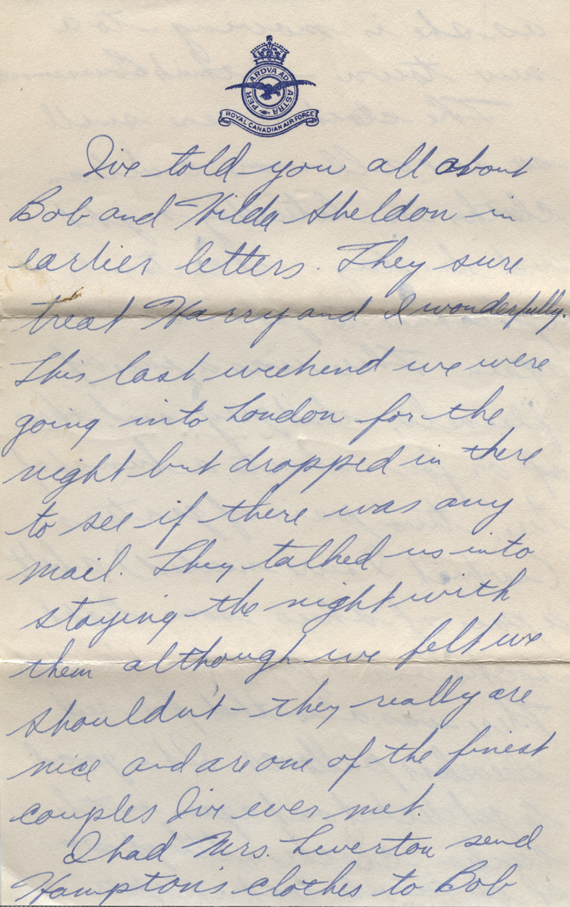 PER ARDVA AD ASTRA
ROYAL CANADIAN AIR FORCE
I've told you all about
Bob and Hilda Sheldon in
earlier letters. They sure
treat Harry and I wonderfully.
This last weekend we were
going into London for the
night but dropped in there
to see if there was any
mail. They talked us into
staying the night with
them although we felt we
shouldn't - they really are
nice and are one of the finest
couples I've ever met.
I had Mrs. Leverton send
Hampton's clothes to Bob